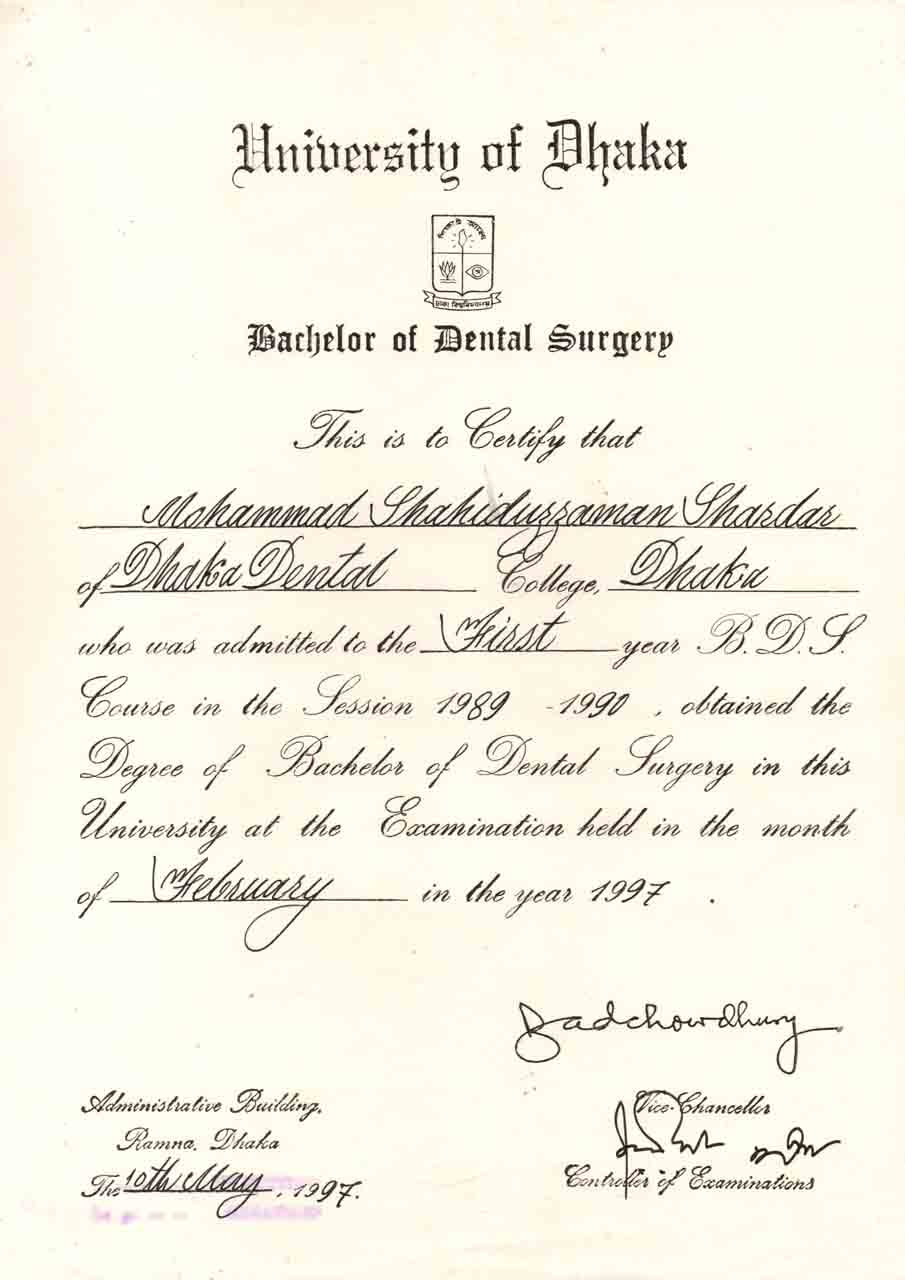 University of Dhaka
শিক্ষাই আলো
ঢাকা বিশ্ববিদ্যালয়
Bachelor of Dental Surgery
This is to Certify that
Mohammad Shahiduzzaman Shardar
of Dhaka Dental College, Dhaka
who was admitted to the First year B. D. S.
Course in the Session 1989 - 1990 , obtained the
Degree of Bachelor of Dental Surgery in this
University at the Examination held in the month
of February in the year 1997 .
Badchowdhury
Administrative Building,
Ramna, Dhaka
The 10th May, 1997.
Vice-Chancellor
Controller of Examinations